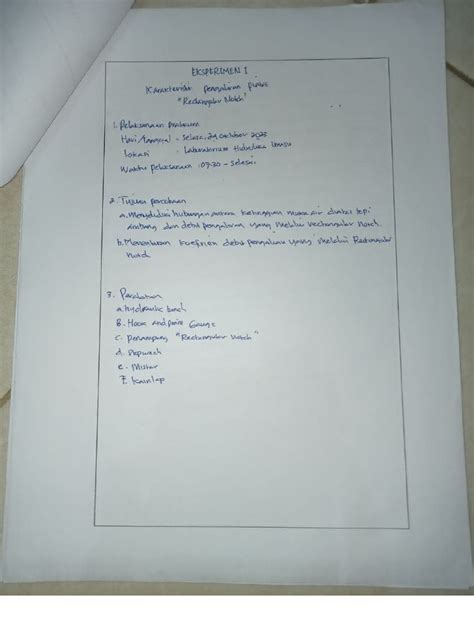 EKSPERIMEN 1
Karakteristik pengaliran pada
"Rectangular Notch"
1. Pelaksanaan praktikum
Hari/tanggal - Selasa, 24 Oktober 2023
Lokasi : Laboratorium Hidrolika
Waktu pelaksanaan : 07:30 - selesai
2. Tujuan percobaan
a. Menyelidiki hubungan antara ketinggian muka air diatas tepi
ambang dan debit pengaliran yang melalui rectangular notch.
b. Menentukan koefisien debit pengaliran yang melalui Rectangular
notch
3. Peralatan
a. Hydraulic bench
B. Hook and point Gauge
c. Penampang "Rectangular Notch"
d. Stopwach
e. Mistar
F. Kain lap